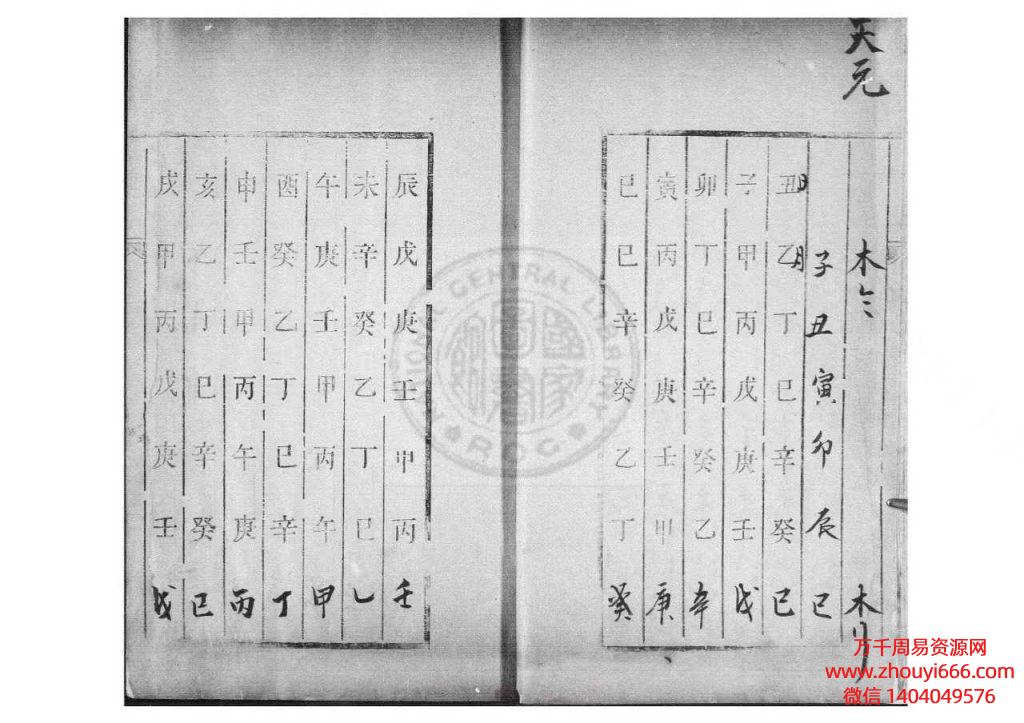 元
木
木
子丑寅卯辰巳
日
月
丑乙丁巳辛癸巳
子甲丙戊庚壬戊
卯丁巳辛癸乙辛
寅丙戊庚壬甲庚
巳巳辛癸乙丁癸
辰戊庚壬甲丙壬
未辛癸乙丁巳乙
午庚壬甲丙午甲
酉癸乙丁巳辛丁
申壬甲丙午庚丙
亥乙丁巳辛癸巳
戌甲丙戊庚壬戊
NATIONAL CENTRAL LIBRARY
ROC
万千周易资源网
www.zhouyi666.com
微信 1404049576